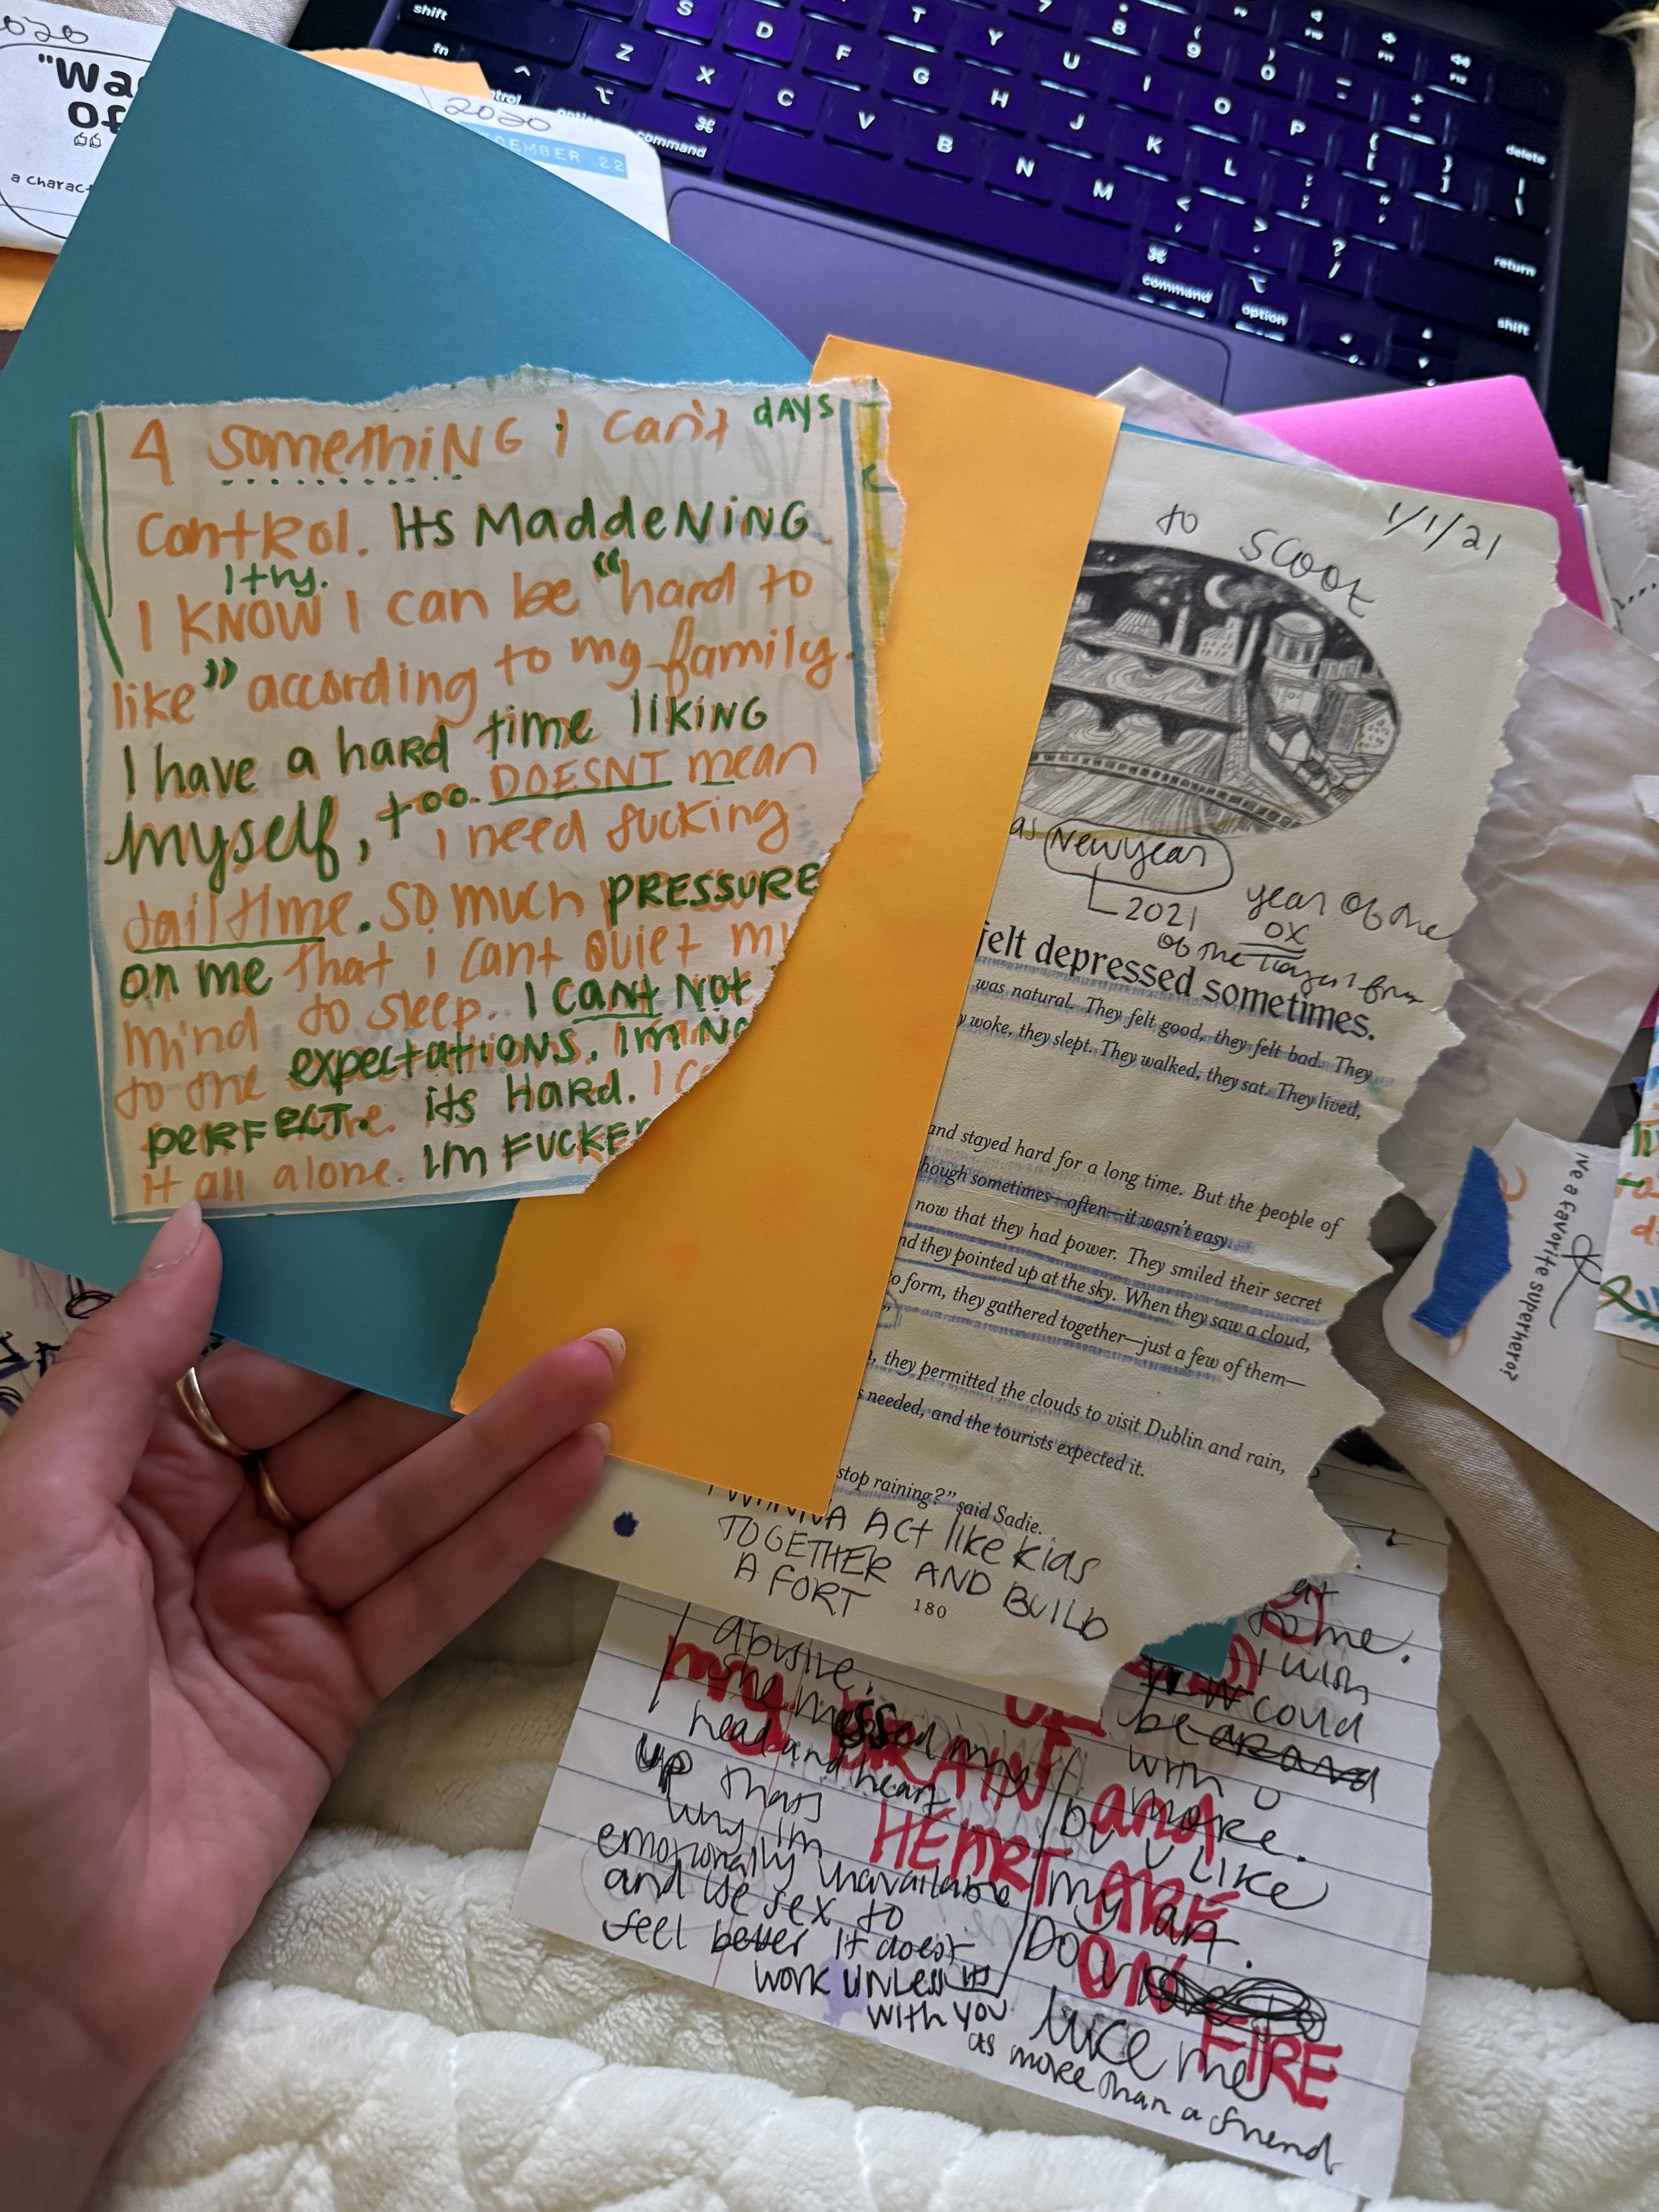 2020
"Wa
of
a charac
2020
DEMBER 22
shift
fn
control
option
command
S
D
F
T
Y
7
8
9
0
Z
X
C
G
H
U
I
O
P
V
B
J
K
L
N
M
delete
return
shift
command
option
days
4 something i can't
control. Its Maddening.
I try.
I KNOW I can be "hard to
like" according to my family.
I have a hard time liking
myself, too. DOESNT mean
i need fucking
jail time. So much PRESSURE
on me that i cant quiet my
mind to sleep. I cant Not
to the expectations. Im No
PERFECT. its Hard. I c
it all alone. Im FUCKE
1/1/21
to scoot
as New year
2021
year of the
ox
felt depressed sometimes.
was natural. They felt good, they felt bad. They
y woke, they slept. They walked, they sat. They lived,
and stayed hard for a long time. But the people of
hough sometimes—often—it wasn't easy.
now that they had power. They smiled their secret
nd they pointed up at the sky. When they saw a cloud,
to form, they gathered together—just a few of them—
"
, they permitted the clouds to visit Dublin and rain,
s needed, and the tourists expected it.
stop raining?" said Sadie.
I WANNA Act like kids
TOGETHER AND BUILD
A FORT
180
abusive.
she messed my
head and heart
up thats
why im
emotionally unavailable
and use sex to
feel better it doesnt
work unless its
with you
as more than a friend
to me.
I wish
could
be
with u
more.
Do u like
my art.
Do u
like me
my BRAIN and
HEART ARE
ON
FIRE
've a favorite superhero?